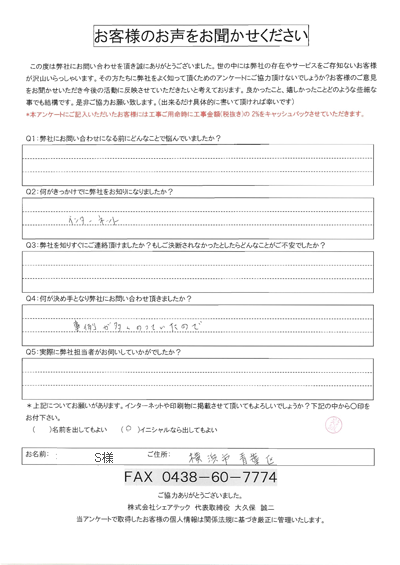 お客様のお声をお聞かせください
この度は弊社にお問い合わせを頂き誠にありがとうございました。世の中には弊社の存在やサービスをご存知ないお客様
が沢山いらっしゃいます。その方たちに弊社をよく知って頂くためのアンケートにご協力頂けないでしょうか?お客様のご意見
をお聞かせいただき今後の活動に反映させていただきたいと考えております。良かったこと、嬉しかったことどのような些細な
事でも結構です。是非ご協力お願い致します。(出来るだけ具体的に書いて頂ければ幸いです)
*本アンケートにご記入いただいたお客様には工事ご用命時に工事金額(税抜き)の2%をキャッシュバックさせていただきます。
Q1:弊社にお問い合わせになる前にどんなことで悩んでいましたか?
Q2:何がきっかけでに弊社をお知りになりましたか?
インターネット
Q3:弊社を知りすぐにご連絡頂けましたか?もしご決断されなかったとしたらどんなことがご不安でしたか?
Q4:何が決め手となり弊社にお問い合わせ頂きましたか?
事例が多くのっていたので
Q5:実際に弊社担当者がお伺いしていかがでしたか?
*上記についてお願いがあります。インターネットや印刷物に掲載させて頂いてもよろしいでしょうか?下記の中から〇印を
お付下さい。
( )名前を出してもよい (○)イニシャルなら出してもよい
お名前: S様 ご住所: 横浜市青葉区
FAX 0438-60-7774
ご協力ありがとうございました。
株式会社シェアテック 代表取締役 大久保 誠二
当アンケートで取得したお客様の個人情報は関係法規に基づき厳正に管理いたします。